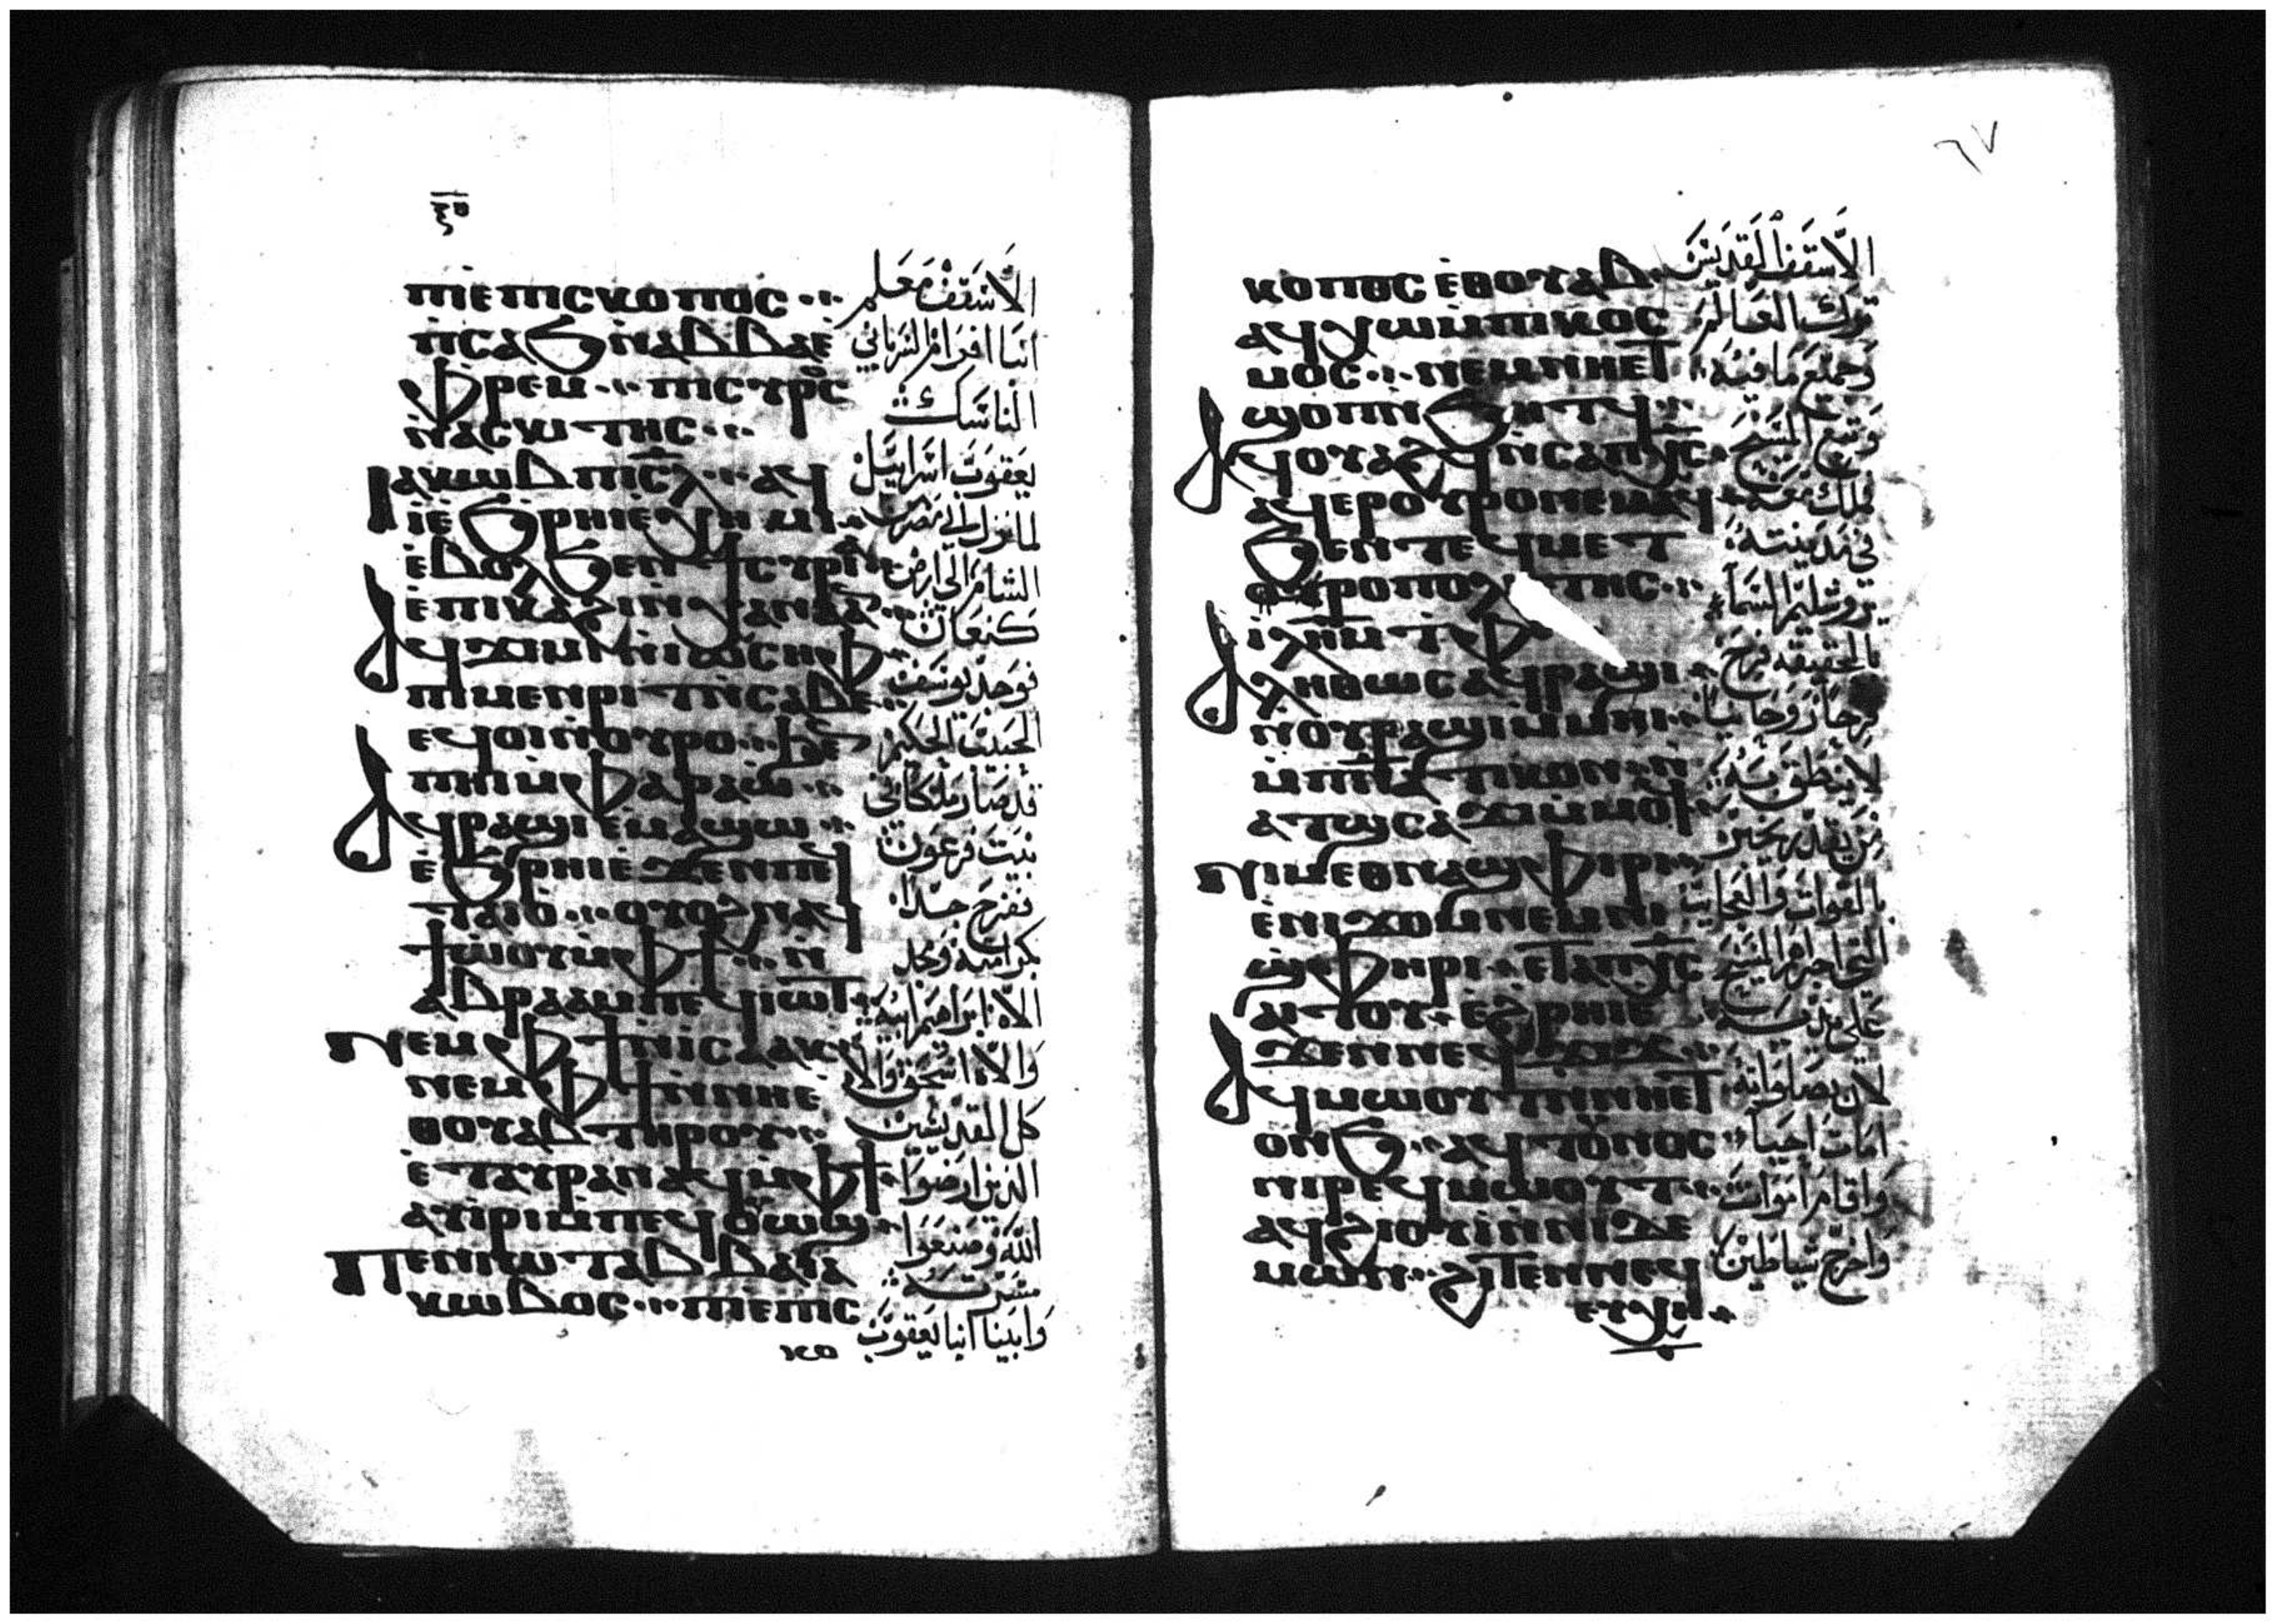 ⲡⲓⲉⲡⲓⲥⲕⲟⲡⲟⲥ
ⲡⲥⲁϧ ⲛⲁⲃⲃⲁⲉ
ⲫⲣⲉⲙ ⲡⲓⲥⲩⲣⲟⲥ
ⲛⲁⲥⲕⲓⲧⲏⲥ
ⲓⲁⲕⲱⲃ ⲡⲓⲥ̅ⲗ̅ ⲁϥ
ⲓ̀ⲉ̀ϧⲣⲏⲓ ⲉ̀ⲭⲏⲙⲓ
ⲉ̀ⲃⲟⲗϧⲉⲛ
ⲉ̀ⲡⲓⲕⲁϩⲓ ⲛ̀ⲭⲁⲛⲁ
ⲁϥϫⲓⲙⲓ ⲛ̀ⲓⲱⲥⲏⲫ
ⲡⲓⲙⲉⲛⲣⲓⲧ ⲛ̀ⲥⲁⲃⲉ
ⲉϥⲟⲓ ⲛ̀ⲟⲩⲣⲟ
ⲡⲏⲓ ⲙ̀ⲫⲁⲣⲁⲱ
ⲁϥⲣⲁϣⲓ ⲉⲙⲁϣⲱ
ⲉ̀ϧⲣⲏⲓ ⲉ̀ϫⲉⲛ ⲡⲉϥ
ⲧⲁⲓⲟ ⲟⲩⲟϩ ⲛⲁϥ
ϯⲱ̀ⲟⲩ ⲙ̀ⲫϯ ⲛ̀
ⲁⲃⲣⲁⲁⲙ ⲡⲉϥⲓⲱⲧ
ⲛⲉⲙ ⲫϯ ⲛ̀ⲓⲥⲁⲁⲕ
ⲛⲉⲙ ⲫϯ ⲛ̀ⲛⲏⲉ̀
ⲑⲟⲩⲁⲃ ⲧⲏⲣⲟⲩ
ⲉ̀ⲧⲁⲩⲣⲁⲛⲁϥ ⲙ̀ⲫϯ
ⲁⲩⲓⲣⲓ ⲙ̀ⲡⲉϥⲟⲩⲱϣ
ⲡⲉⲛⲓⲱⲧ ⲁⲃⲃⲁ ⲓⲁ
ⲕⲱⲃⲟⲥ ⲡⲓⲉⲡⲓⲥ
الأسقف معلم
انبا افرام السرياني
الناسك
يعقوب اسراييل
لما نزل الى مصر من
الشام الى ارض
كنعان
فوجد يوسف
الحبيب الحكيم
قد صار ملكا في
بيت فرعون
ففرح جدا
بكرامته ومجد
الاه ابراهيم ابيه
والاه اسحق والاه
كل القديسين
الذين ارضوا
الله وصنعوا
مسرته
وابينا انبا يعقوب
٦٧
ⲕⲟⲡⲟⲥ ⲉ̀ⲑⲟⲩⲁⲃ
ⲁϥⲭⲱ ⲙ̀ⲡⲓⲕⲟⲥ
ⲙⲟⲥ ⲛⲉⲙ ⲛⲏⲉⲧ
ϣⲟⲡ ⲛ̀ϧⲏⲧϥ
ⲁϥⲟⲩⲁϩϥ ⲛ̀ⲥⲁ ⲡⲭ̅ⲥ̅
ⲁϥⲉⲣⲟⲩⲣⲟ ⲛⲉⲙⲁϥ
ϧⲉⲛ ⲧⲉϥⲙⲉⲧ
ⲓ̅ⲗ̅ⲏ̅ⲙ̅ ⲛ̀ⲧⲉ ⲧⲫⲉ
ⲁⲗⲏⲑⲱⲥ ⲁϥⲣⲁϣⲓ
ⲛ̀ⲟⲩⲣⲁϣⲓ
ⲙ̀ⲡⲛ̅ⲁ̅ⲧⲓⲕⲟⲛ ⲛ̀
ⲁⲧϣⲥⲁϫⲓ ⲙ̀ⲙⲟϥ
ⲛⲓⲙ ⲉⲑⲛⲁϣⲫⲓⲣⲓ
ⲉ̀ⲛⲓϫⲟⲙ ⲛⲉⲙ ⲛⲓ
ϣⲫⲏⲣⲓ ⲉⲧⲁ ⲡⲭ̅ⲥ̅
ⲁⲓⲧⲟⲩ ⲉϩⲣⲏⲓ ⲉ̀
ϫⲉⲛ ⲛⲉϥϫⲓϫ
ⲟⲛϧ ⲁϥⲧⲟⲩⲛⲟⲥ
ⲛⲓⲣⲉϥⲙⲱⲟⲩⲧ
ⲁϥϩⲓⲟⲩⲓ̀ ⲛ̀ⲛⲓⲇⲉ
ⲙⲱⲛ ϩⲓⲧⲉⲛ ⲛⲉϥ
ⲉⲩⲭⲏ
الأسقف القديس
ترك العالم
وجميع ما فيه
وتبع المسيح
ملك معه
في مدينته
يروشليم السماء
بالحقيقة فرح
فرحا روحانيا
لا ينطق به
من يقدر يخبر
بالقوات والعجايب
التي اجراها المسيح
على يديه
لان بصلواته
امات احيا
واقام اموات
واخرج شياطين